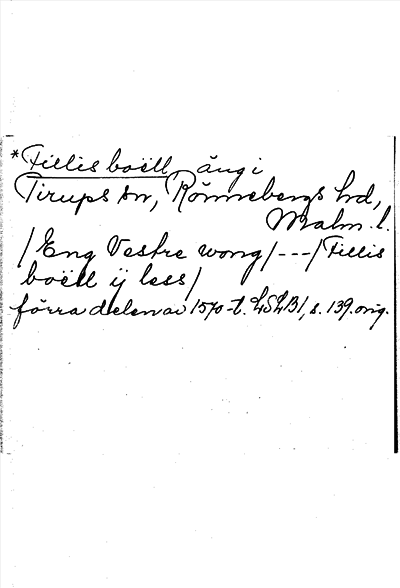 *Fillis boëll, äng i
Tirups sn, Rönnebergs hd,
Malm. l.
/Eng Vestre wong/---/Fillis
boëll ij less/
förra delen av 1570-t. LSLB1, s. 139. orig.